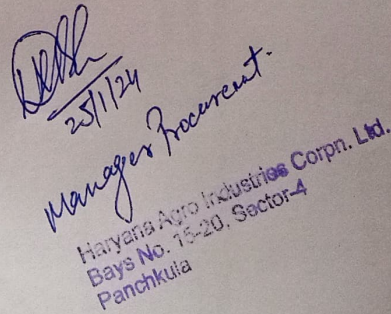 25/1/24
Manager Procurement.
Haryana Agro Industries Corpn. Ltd.
Bays No. 15-20, Sector-4
Panchkula